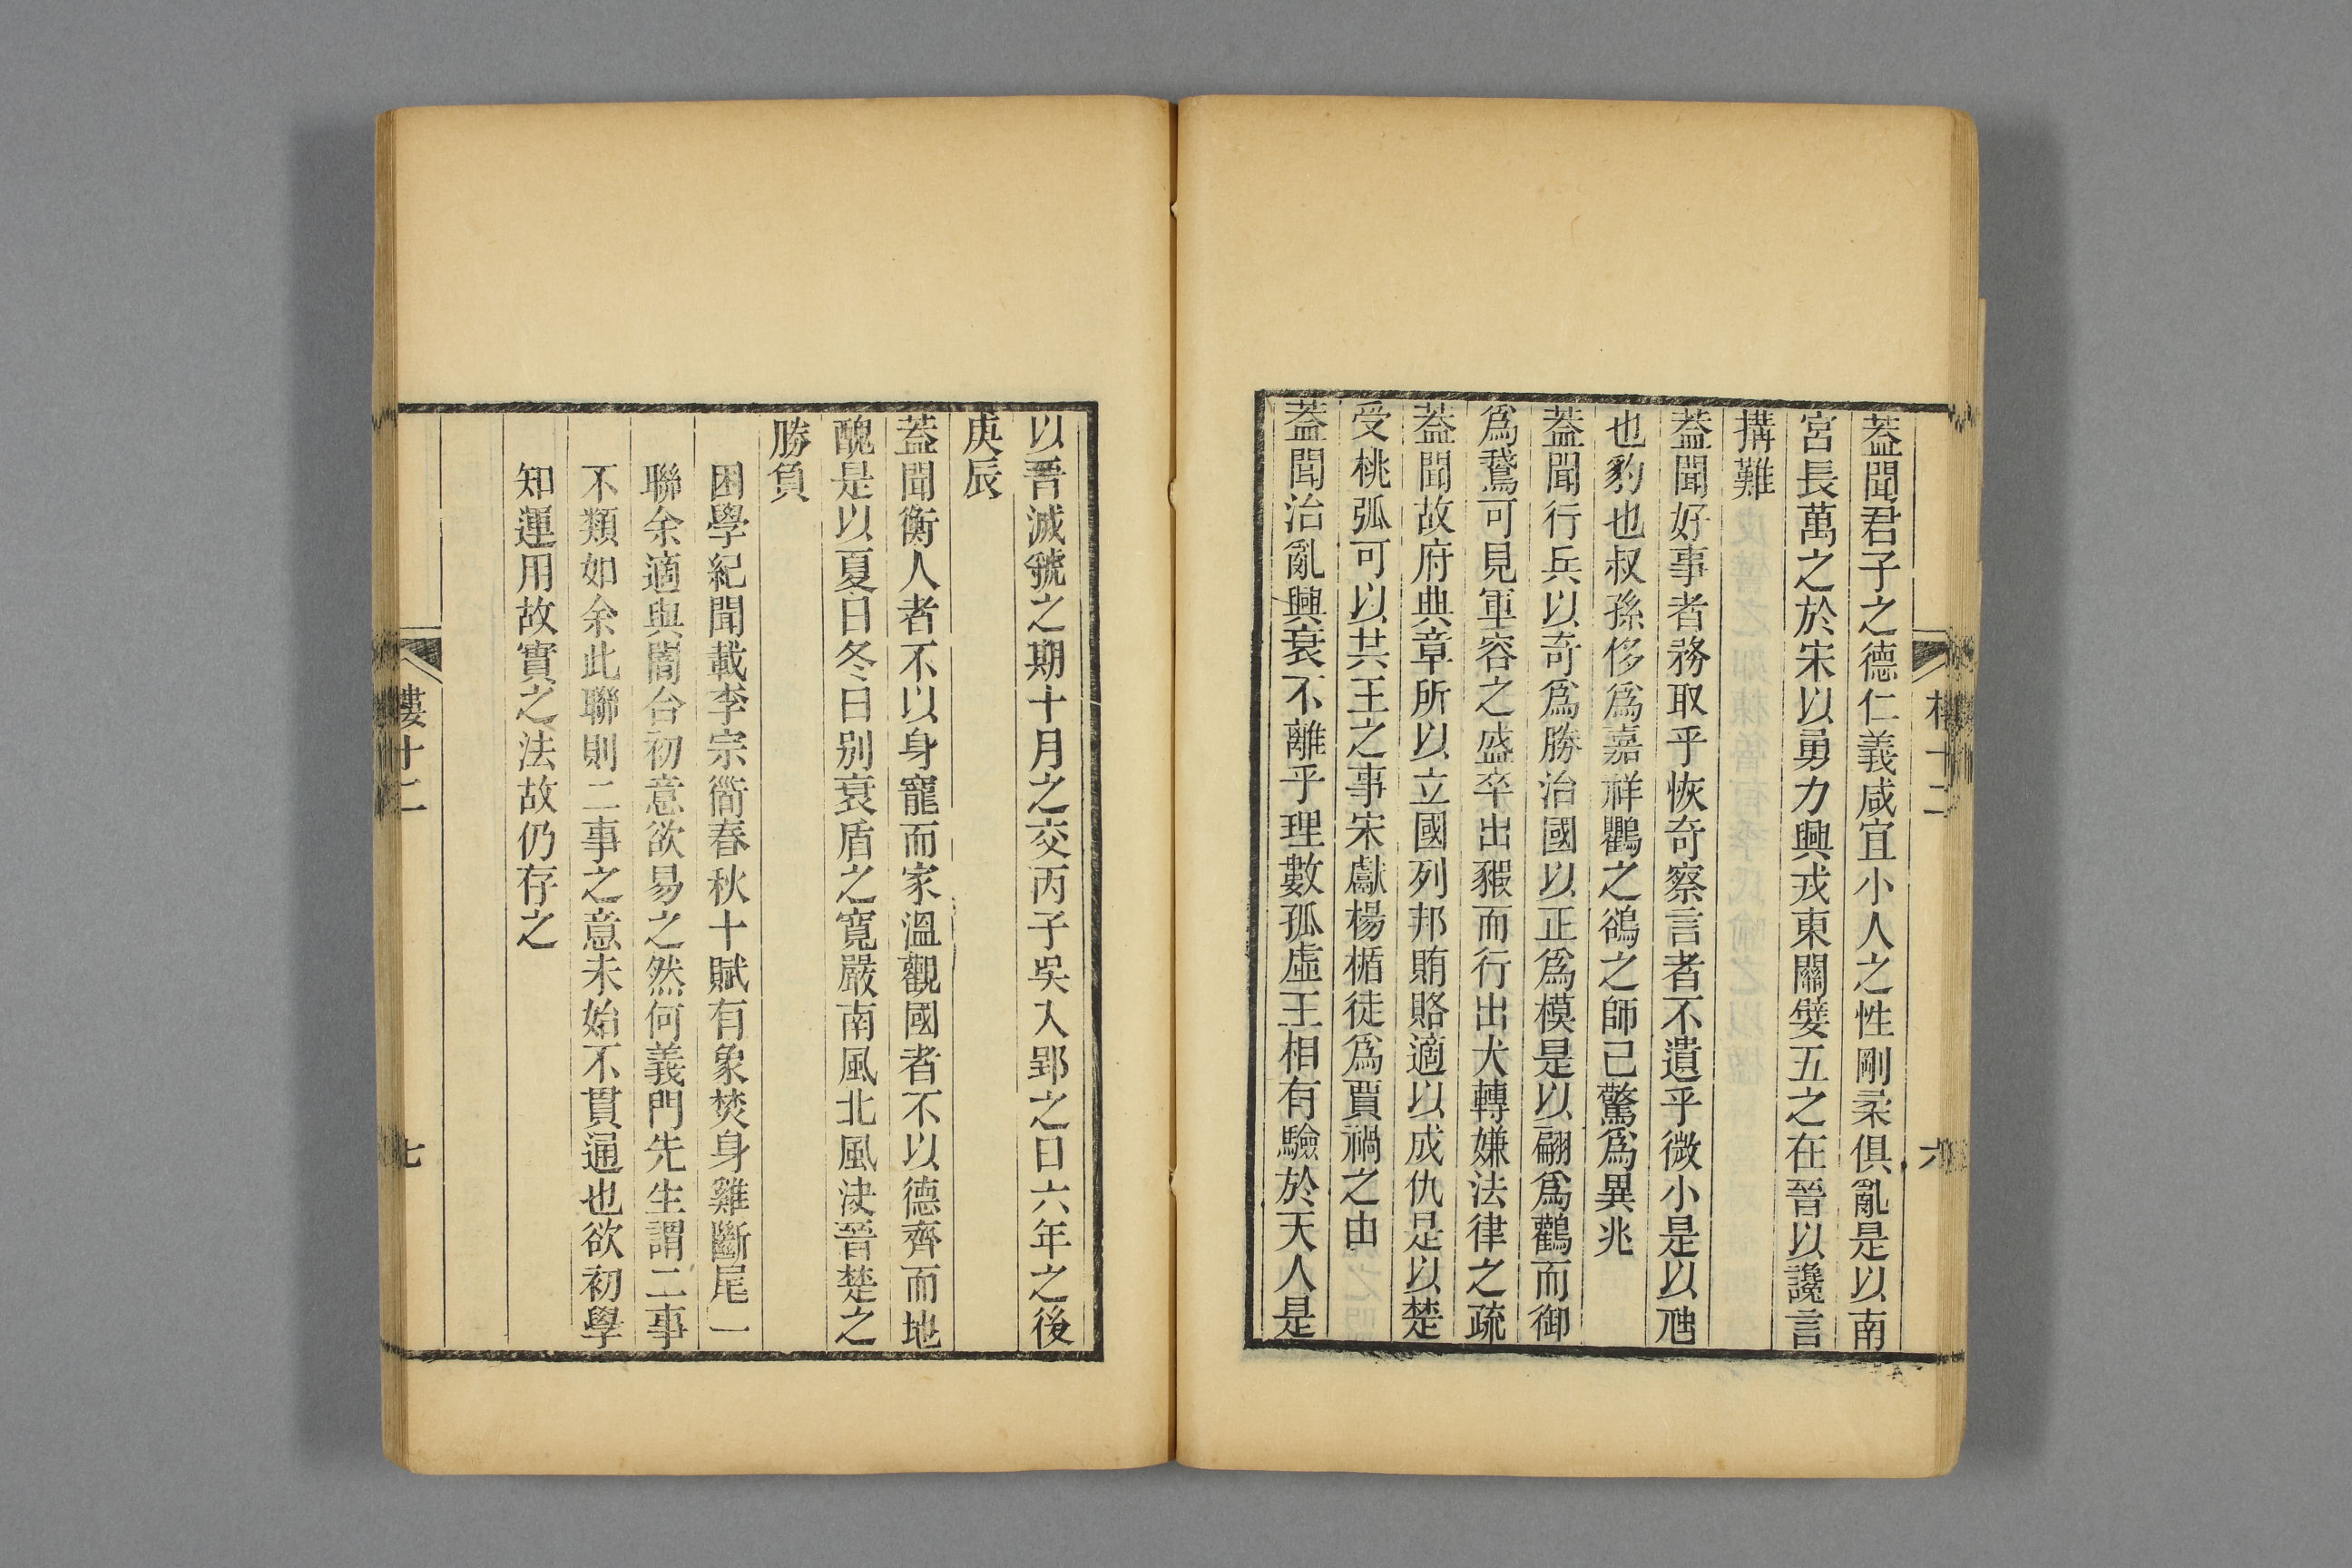 蓋聞君子之德仁義咸宜小人之性剛柔俱亂是以南
宮長萬之於宋以勇力興戎東關嬖五之在晉以讒言
搆難
蓋聞好事者務取乎恢奇察言者不遺乎微小是以虺
也豹也叔孫侈爲嘉祥鸜之鵒之師己驚爲異兆
蓋聞行兵以奇爲勝治國以正爲模是以翩爲鸛而御
爲鵞可見軍容之盛卒出豭而行出犬轉嫌法律之疏
蓋聞故府典章所以立國列邦賄賂適以成仇是以楚
受桃弧可以共王之事宋獻楊楯徒爲賈禍之由
蓋聞治亂興衰不離乎理數孤虛王相有驗於天人是
十二
六
以晉滅虢之期十月之交丙子吳入郢之日六年之後
庚辰
蓋聞衡人者不以身寵而家溫觀國者不以德齊而地
醜是以夏日冬日别衰盾之寬嚴南風北風決晉楚之
勝負
困學紀聞載李宗衜春秋十賦有象焚身雞斷尾一
聯余適與闇合初意欲易之然何義門先生謂二事
不類如余此聯則二事之意未始不貫通也欲初學
知運用故實之法故仍存之
樓十二
七